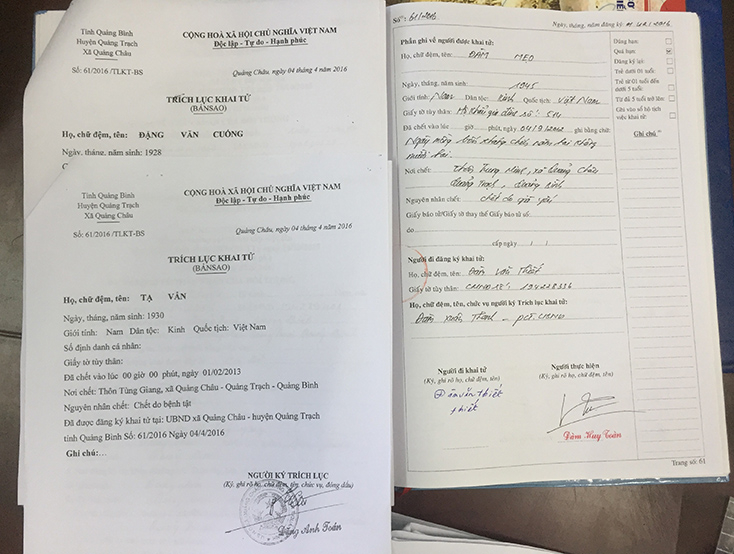 Tỉnh Quảng Bình
Huyện Quảng Trạch
Xã Quảng Châu
Số: 61/2016 /TLKT-BS
CỘNG HOÀ XÃ HỘI CHỦ NGHĨA VIỆT NAM
Độc lập - Tự do - Hạnh phúc
Quảng Châu, ngày 04 tháng 4 năm 2016
TRÍCH LỤC KHAI TỬ
(BẢN SAO)
Họ, chữ đệm, tên: ĐẶNG VĂN CUÔNG
Ngày, tháng, năm sinh: 1928
Tỉnh Quảng Bình
Huyện Quảng Trạch
Xã Quảng Châu
Số: 61/2016 /TLKT-BS
CỘNG HOÀ XÃ HỘI CHỦ NGHĨA VIỆT NAM
Độc lập - Tự do - Hạnh phúc
Quảng Châu, ngày 04 tháng 4 năm 2016
TRÍCH LỤC KHAI TỬ
(BẢN SAO)
Họ, chữ đệm, tên: TẠ VĂN
Ngày, tháng, năm sinh: 1930
Giới tính: Nam Dân tộc: Kinh Quốc tịch: Việt Nam
Số định danh cá nhân:
Giấy tờ tùy thân:
Đã chết vào lúc 00 giờ 00 phút, ngày 01/02/2013
Nơi chết: Thôn Tùng Giang, xã Quảng Châu - Quảng Trạch - Quảng Bình
Nguyên nhân chết: Chết do bệnh tật
Đã được đăng ký khai tử tại: UBND xã Quảng Châu - huyện Quảng Trạch
tỉnh Quảng Bình Số: 61/2016 Ngày 04/4/2016
Ghi chú:...
NGƯỜI KÝ TRÍCH LỤC
(Ký, ghi rõ họ, chữ đệm, tên, chức vụ, đóng dấu)
Đặng Anh Toán
Số: 61/2016
Ngày, tháng, năm đăng ký:
Phần ghi về người được khai tử:
Họ, chữ đệm, tên: ĐÀM MEO
Ngày, tháng, năm sinh: 1945
Giới tính: Nam Dân tộc: Kinh Quốc tịch: Việt Nam
Giấy tờ tùy thân:
Đã chết vào lúc giờ phút, ngày 04/9/2012 ghi bằng chữ:
Ngày mùng bốn tháng chín năm hai
Nơi chết: xã Quảng Châu
Quảng Trạch, Quảng Bình
Nguyên nhân chết: chết do già yếu
Giấy báo tử/Giấy tờ thay thế Giấy báo tử số:
do
cấp ngày / /
Người đi đăng ký khai tử:
Họ, chữ đệm, tên: Đàm Văn Thiết
Giấy tờ tùy thân: CMND số: 194228336
Họ, chữ đệm, tên, chức vụ người ký Trích lục khai tử:
Đàm Xuân
Người đi khai tử
(Ký, ghi rõ họ, chữ đệm, tên)
Đàm văn thiết
thiết
Người thực hiện
(Ký, ghi rõ họ, chữ đệm, tên)
Đàm Huy Toàn
Đúng hạn:
Quá hạn:
Đăng ký lại:
Trẻ dưới 01 tuổi:
Trẻ từ 01 đến
dưới 5 tuổi:
Từ đủ 5 tuổi trở lên:
Ghi vào sổ hộ tịch
việc khai tử:
Ghi chú
Trang số: 61